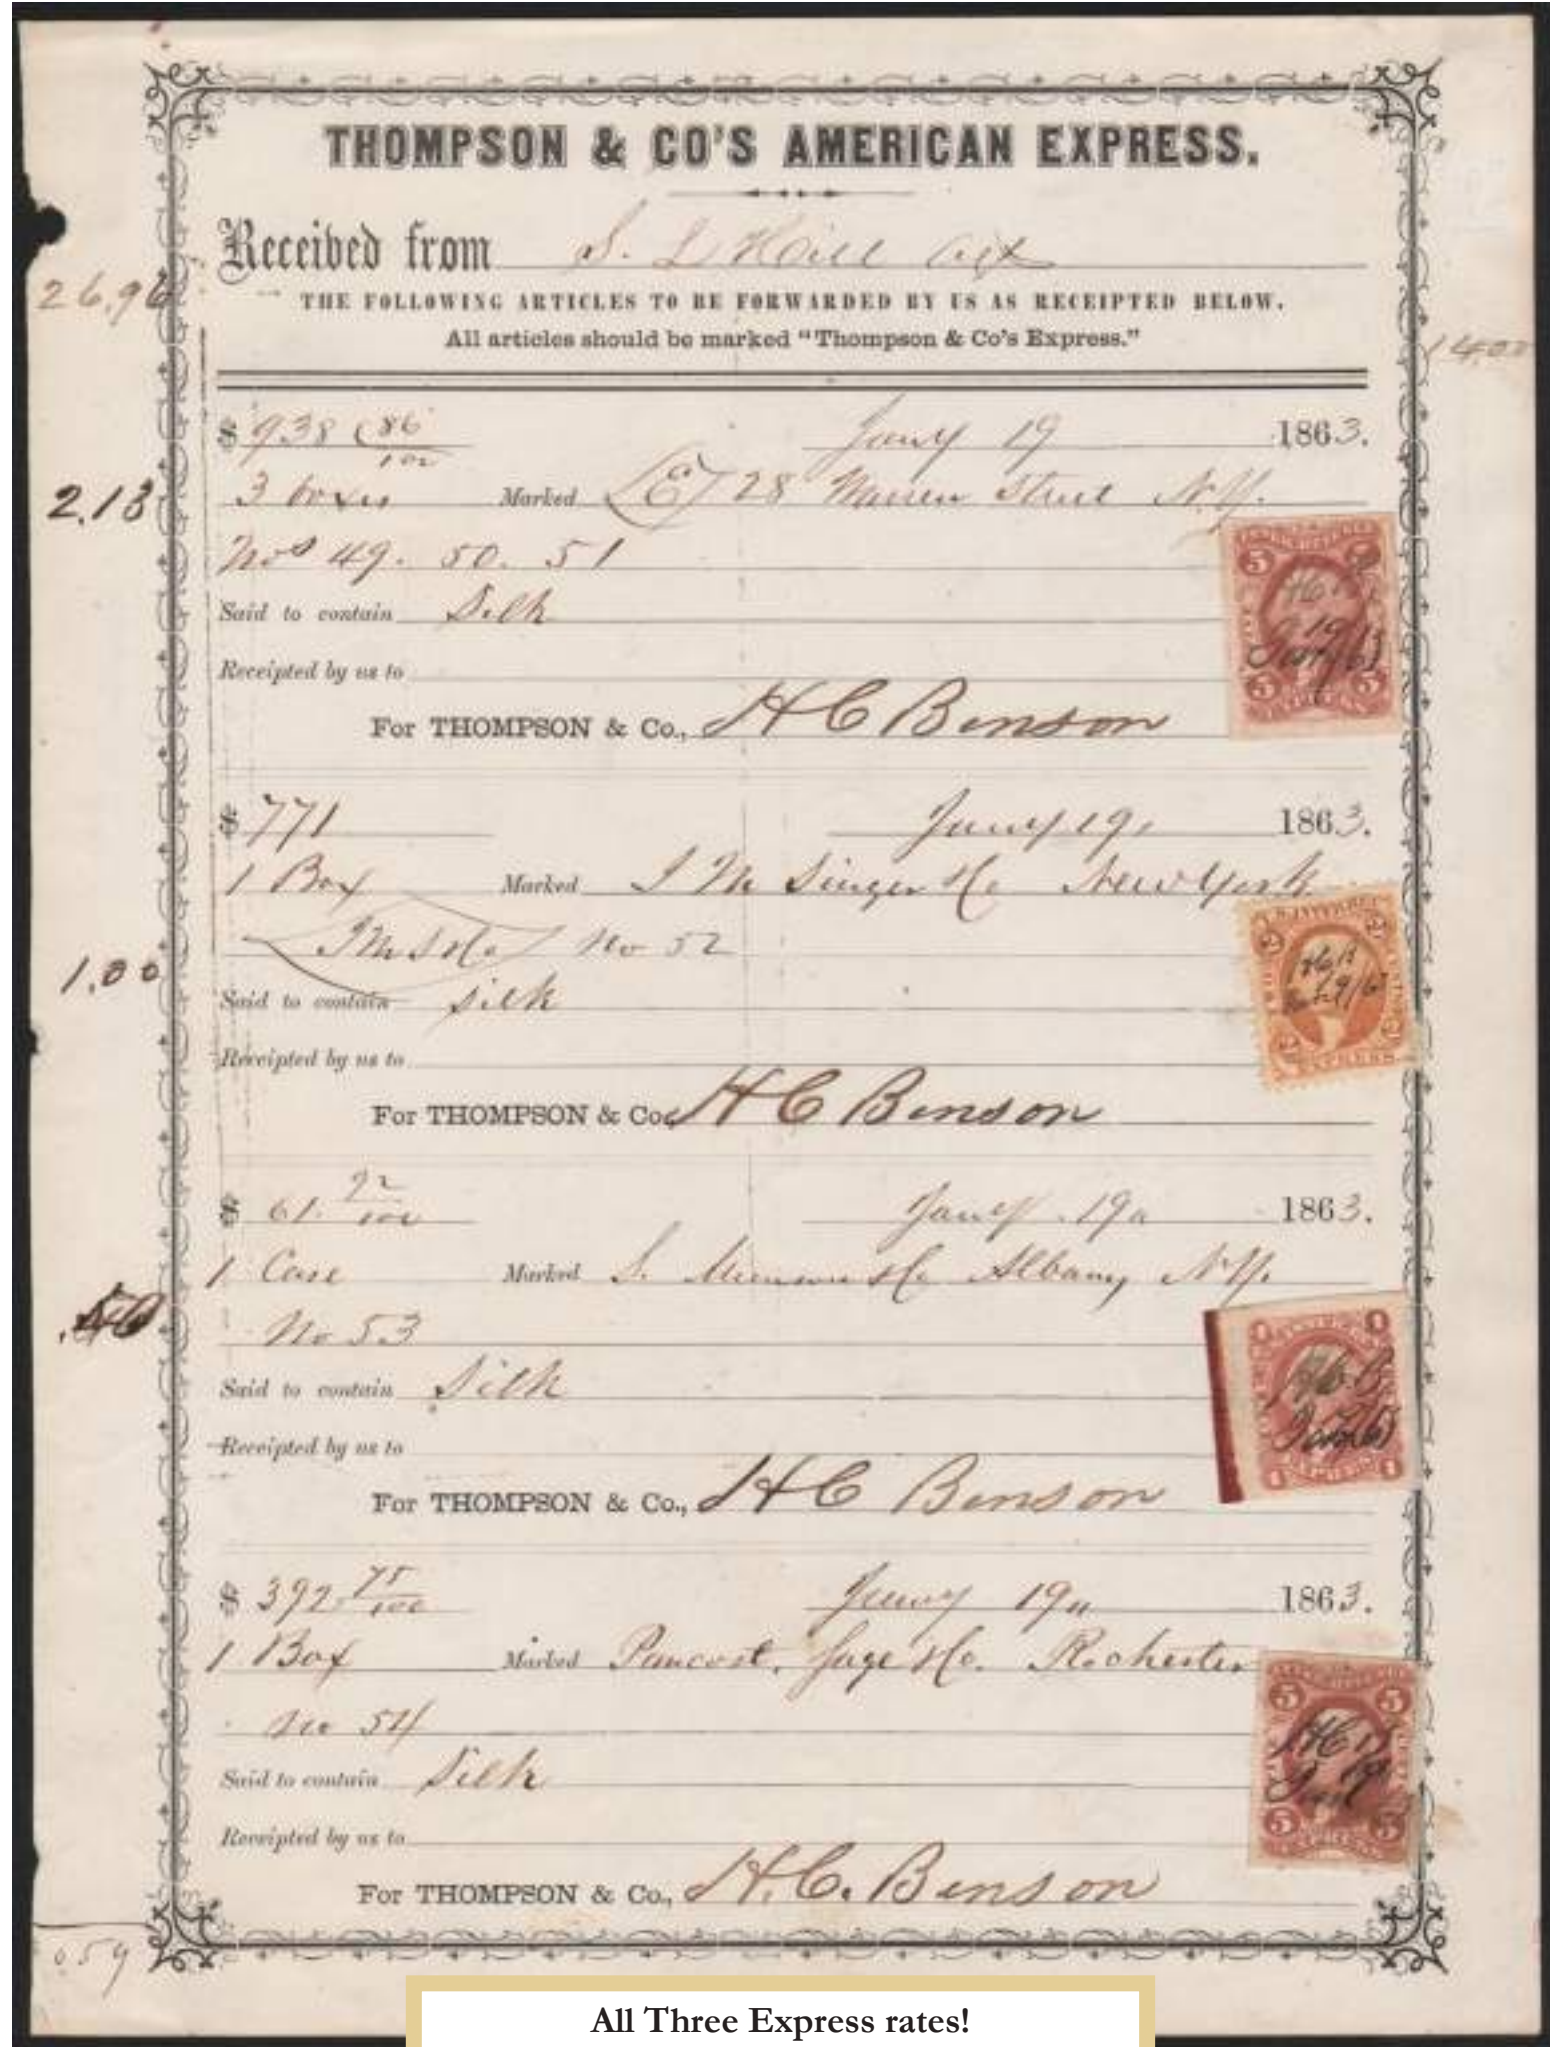 THOMPSON & CO'S AMERICAN EXPRESS.
Received from S. L Hill
THE FOLLOWING ARTICLES TO BE FORWARDED BY US AS RECEIPTED BELOW.
All articles should be marked "Thompson & Co's Express."
26.96
1400
$ 938 86/100 Jany 19 1863.
2.13
3 boxes Marked (E) 28 Warren Street N.Y.
Nos 49. 50. 51
Said to contain Silk
Receipted by us to
For THOMPSON & Co., H C Benson
5 5
5 5
EXPRESS
$ 771 Jany 19, 1863.
1 Box Marked I M Singer & Co New York
I M S & Co No 52
1.00
Said to contain silk
Receipted by us to
For THOMPSON & Co., H C Benson
2 2
2 2
EXPRESS
$ 61. 92/100 Jany. 19 1863.
1 Case Marked S. Munson & Co Albany N.Y.
No 53
Said to contain Silk
Receipted by us to
For THOMPSON & Co., H C Benson
1 1
1 1
EXPRESS
$ 392 75/100 Jany 19 1863.
1 Box Marked Pancost, Sage & Co. Rochester
No 54
Said to contain Silk
Receipted by us to
For THOMPSON & Co., H. C. Benson
5 5
5 5
EXPRESS
All Three Express rates!